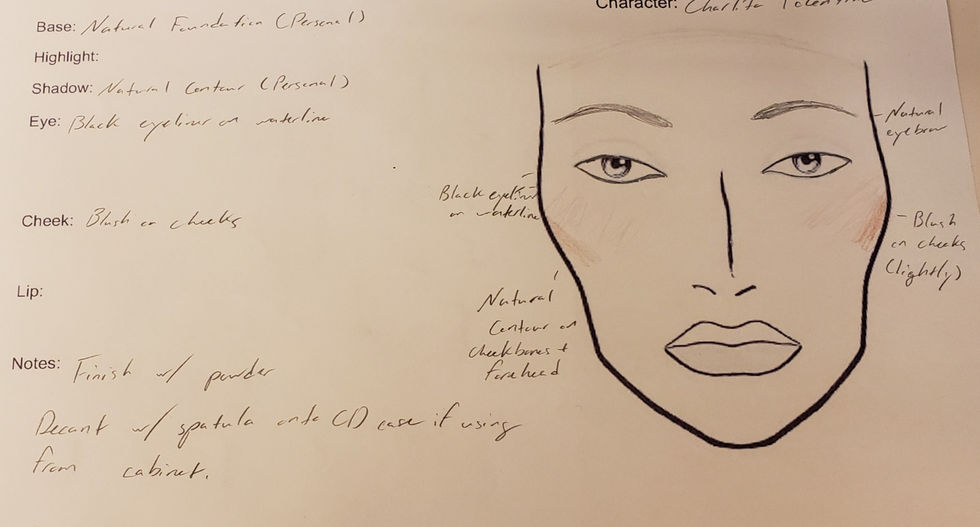 Character: Charlita
Base: Natural Foundation (Personal)
Highlight:
Shadow: Natural Contour (Personal)
Eye: Black eyeliner on waterline
Natural
eyebrow
Black eyeliner
on waterline
Cheek: Blush on cheeks
- Blush
on cheeks
(lightly)
Lip:
Natural
Contour on
cheekbones +
forehead
Notes: Finish w/ powder
Decant w/ spatula onto CD case if using
from cabinet.